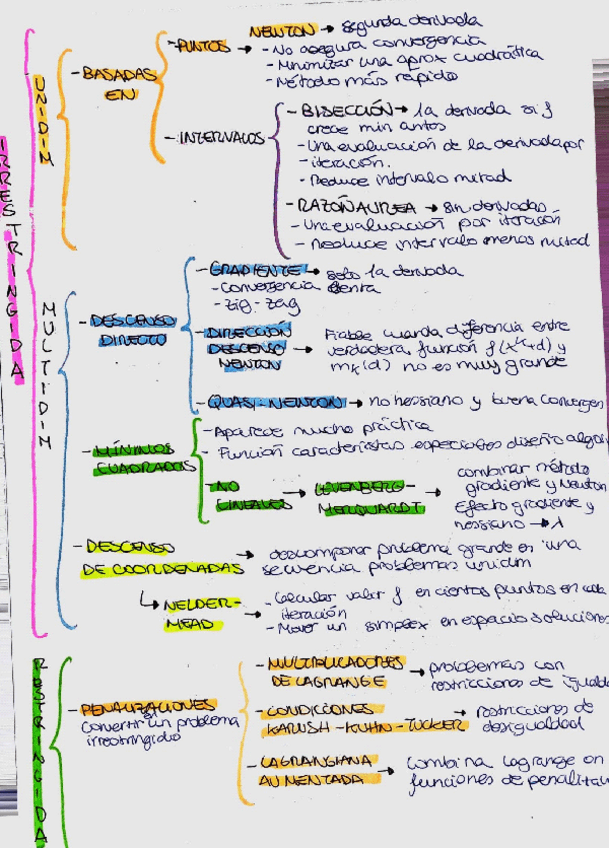 IRRESTRINGIDA
UNIDIM
- BASADAS EN
- PUNTOS →
NEWTON → segunda derivada
- No asegura convergencia
- Minimizar una aprox cuadrática
- Método más rápido
- INTERVALOS
- BISECCIÓN → 1a derivada si f
crece min antes
- Una evaluación de la derivada por
- iteración.
- Reduce intervalo mitad
- RAZÓN AUREA → sin derivadas
- Una evaluación por iteración
- Reduce intervalo menos mitad
MULTIDIM
- DESCENSO
DIRECTO
- GRADIENTE → solo 1a derivada
- Convergencia lenta
- zig-zag
- DIRECCIÓN
DESCENSO
NEWTON →
Fiable cuando diferencia entre
verdadera función f(xk+d) y
mk(d) no es muy grande
- QUASI-NEWTON → no hessiano y buena convergen
- MÍNIMOS
CUADRADOS
- Aparece mucho práctica
- Función características especiales diseño algori
- NO
LINEALES →
LEVENBERG-
MERQUARDT →
combinar método
gradiente y Newton
Efecto gradiente y
hessiano → λ
- DESCENSO
DE COORDENADAS →
descomponer problema grande en una
secuencia problemas unidim
↳ NELDER-
MEAD →
- Calcular valor f en ciertos puntos en cada
iteración
- Mover un simplex en espacio soluciones
RESTRINGIDA
- PENALIZACIONES
convertir en un problema
irrestringido
- MULTIPLICADORES
DE LAGRANGE →
problemas con
restricciones de iguald
- CONDICIONES
KARUSH-KUHN-TUCKER →
restricciones de
desigualdad
- LAGRANGIANA
AUMENTADA →
combina Lagrange con
funciones de penalizac